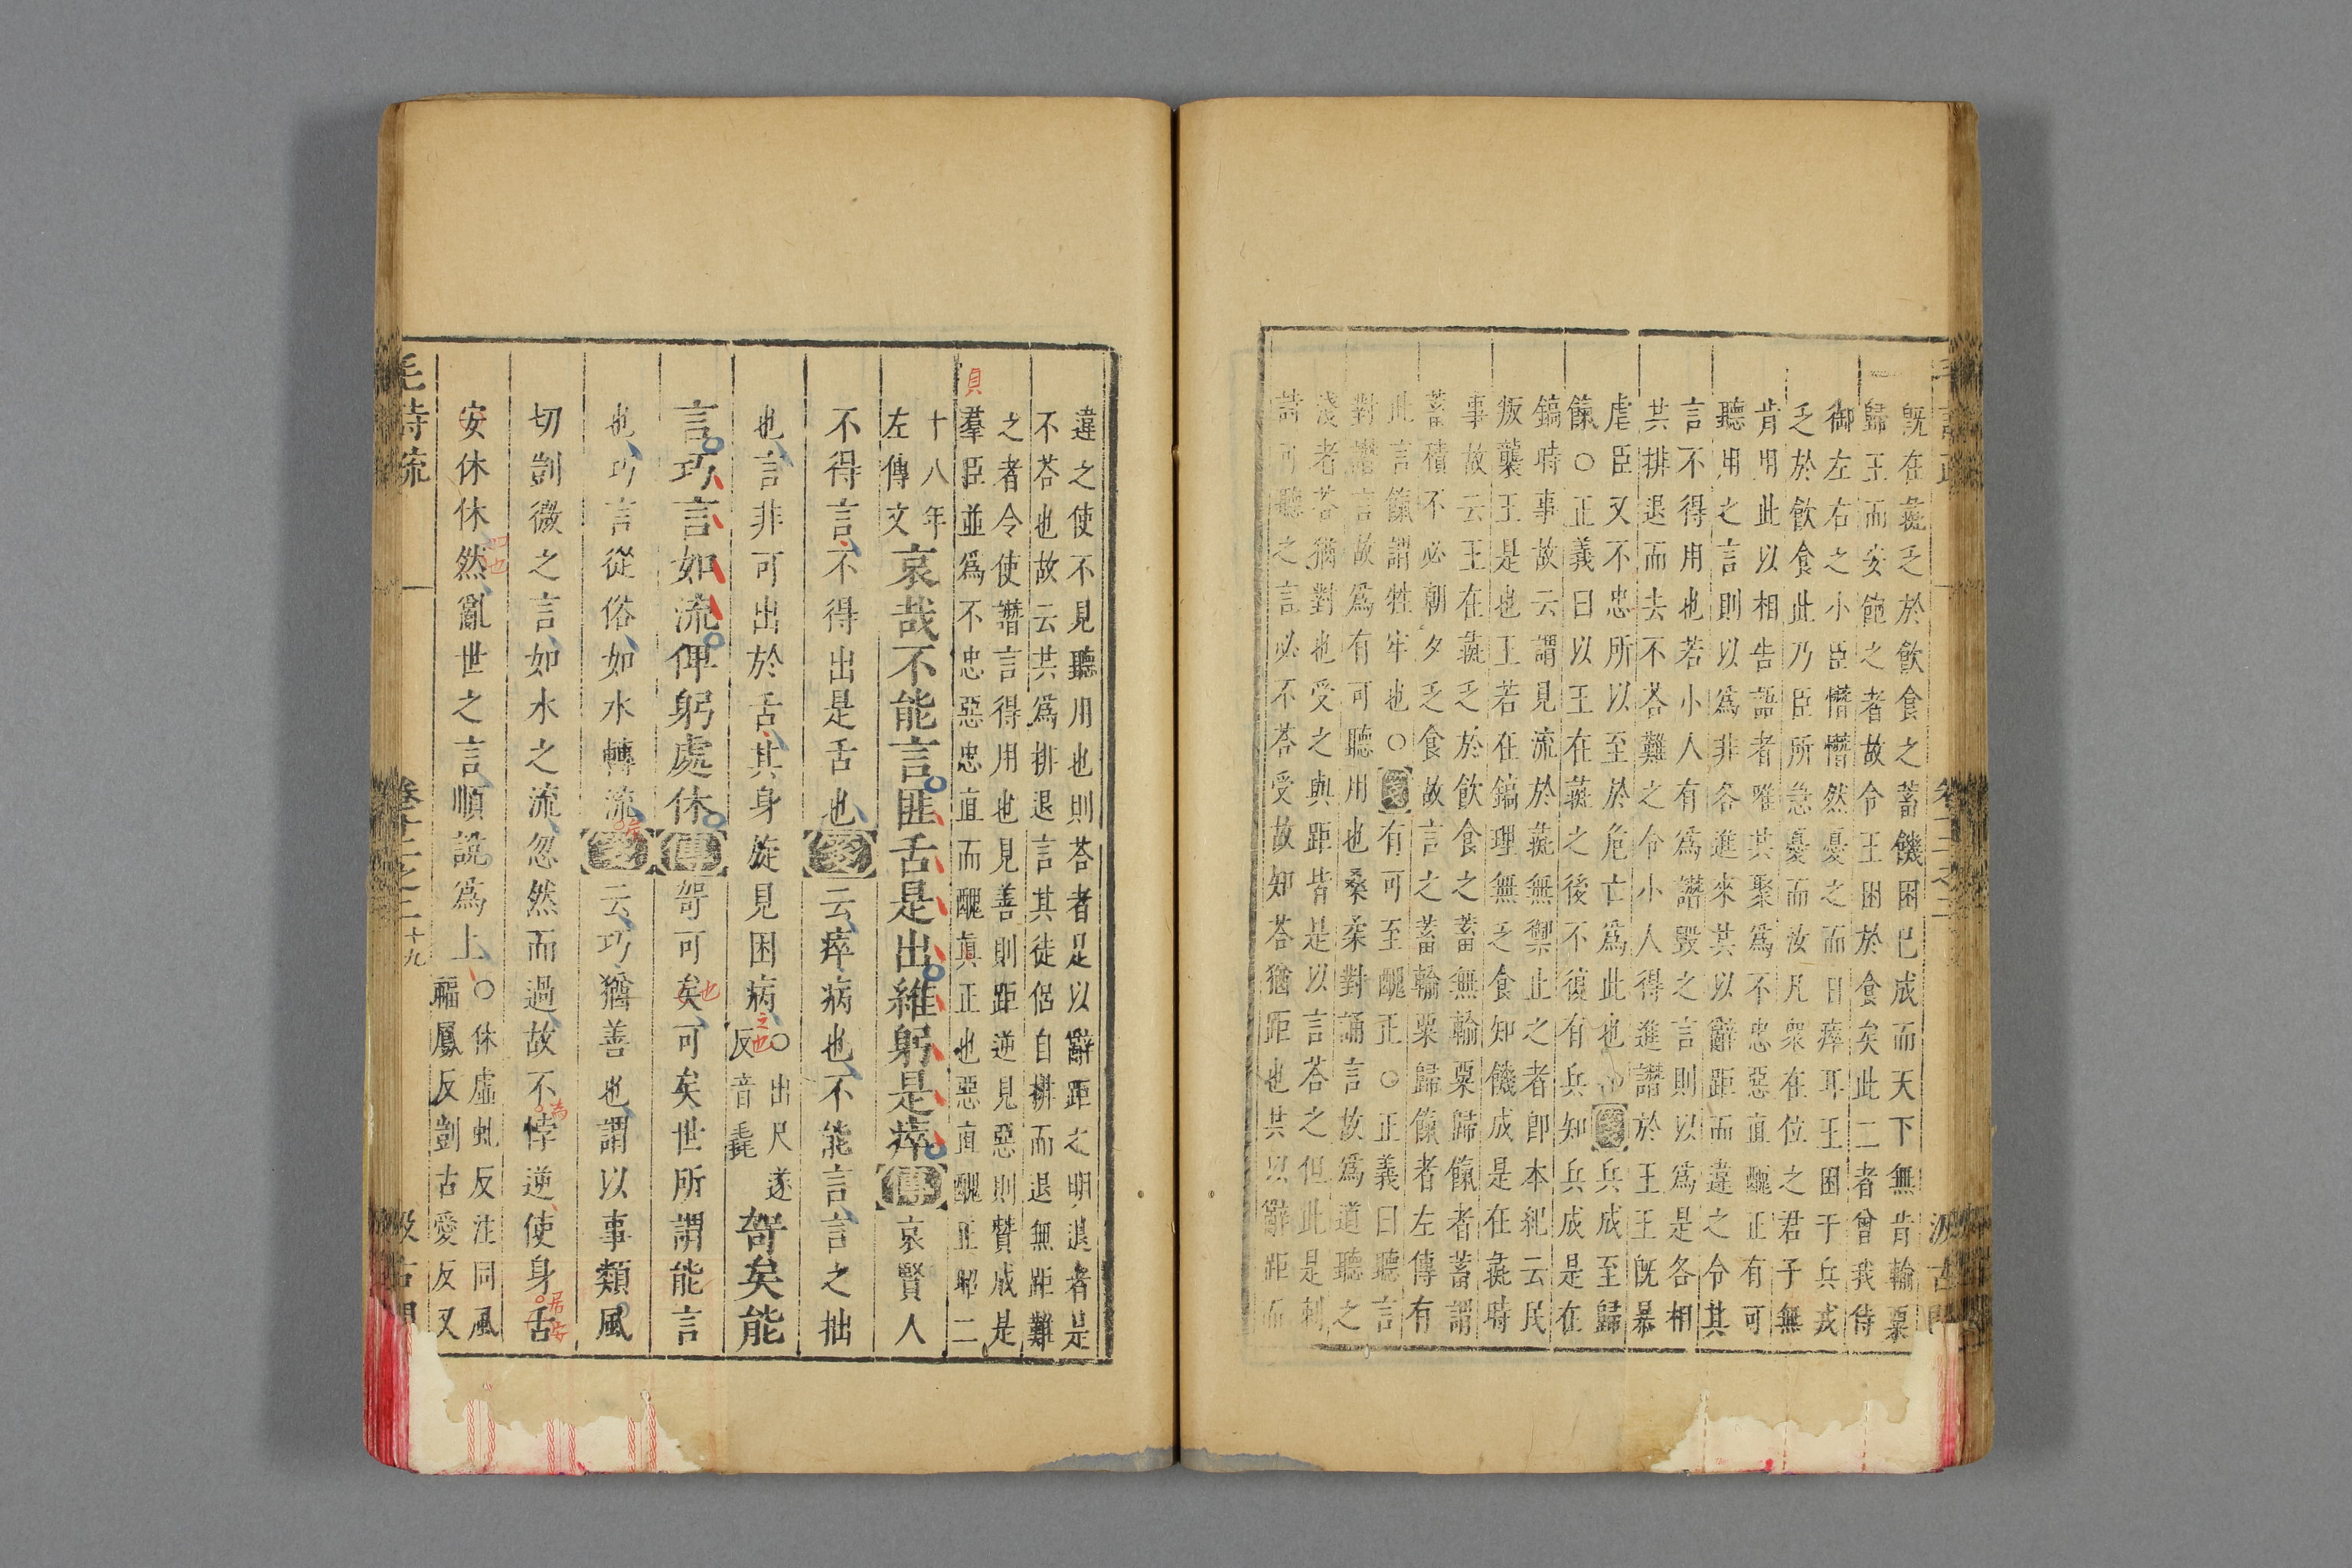 毛詩疏 卷十二之二 汲古閣
旣在彘乏於飲食之蓄饑困已成而天下無肯輸粟
歸王而安飽之者故令王困於食矣此二者曾我侍
御左右之小臣憯憯然憂之而日瘁耳王困于兵戎
乏於飲食此乃臣所急憂而汝凡衆在位之君子無
肯用此以相告語者唯其聚爲不忠惡直醜正有可
聽用之言則以爲非各進來其以辭距而違之令其
言不得用也若小人有爲譖毀之言則以爲是各相
共排退而去不荅難之令小人得進譖於王王旣暴
虐臣又不忠所以至於危亡爲此也 箋兵成至歸
餼○正義曰以王在彘之後不復有兵知兵成是在
鎬時事故云謂見流於彘無禦止之者卽本紀云民
叛襲王是也王若在鎬理無乏食知饑成是在彘時
事故云王在彘乏於飲食之蓄無輸粟歸餼者蓄謂
蓄積不必朝夕乏食故言之蓄輸粟歸餼者左傳有
此言餼謂牲牢也○箋有可至醜正○正義曰聽言
對譖言故爲有可聽用也桑柔對誦言故爲道聽之
淺者荅猶對也受之與距皆是以言荅之但此是刺
詩可聽之言必不荅受故知荅猶距也其以辭距而
違之使不見聽用也則荅者足以辭距之明退者是
不荅也故云共爲排退言其徒侶自排而退無距難
之者令使譖言得用也見善則距逆見惡則贊成是
羣臣並爲不忠惡忠直而醜眞正也惡直醜正昭二
十八年
左傳文
哀哉不能言匪舌是出維躬是瘁傳哀賢人
不得言不得出是舌也箋云瘁病也不能言言之拙
也言非可出於舌其身旋見困病○出尺遂反音毳哿矣能
言巧言如流俾躬處休傳哿可矣可矣世所謂能言
也巧言從俗如水轉流箋云巧猶善也謂以事類風
切剴微之言如水之流忽然而過故不悖逆使身舌
安休休然亂世之言順說爲上○休虛虬反注同風
福鳳反剴古愛反又
毛詩疏 卷十二之二 十九 汲古閣